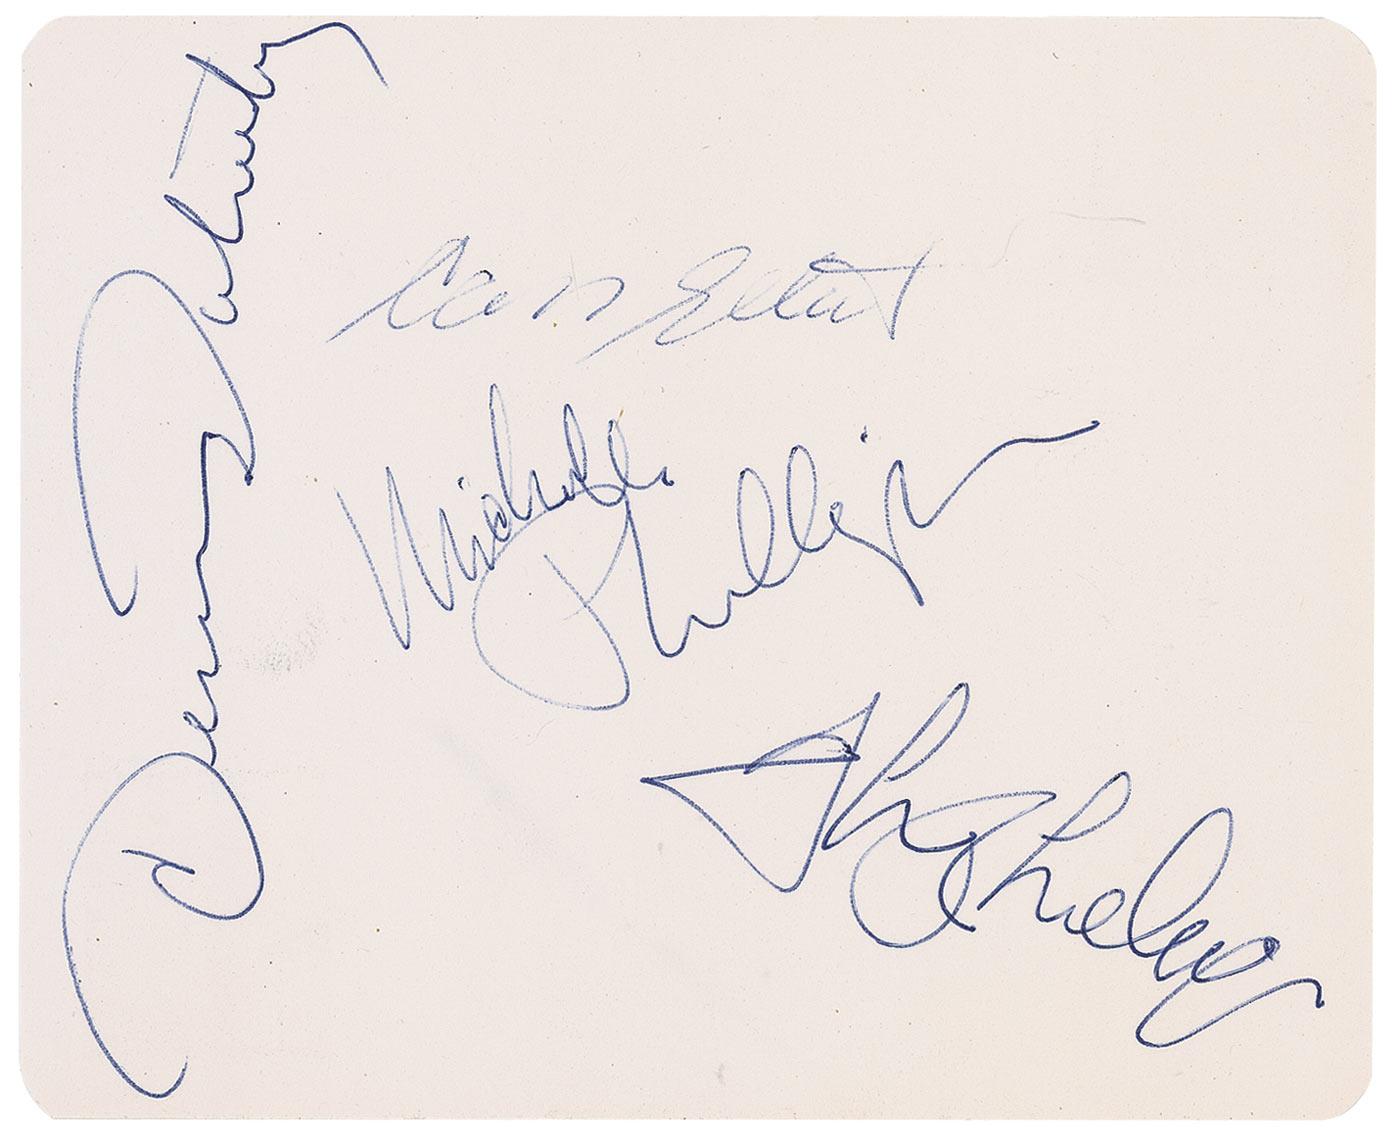 Denny Doherty
Cass Elliot
Michelle Phillips
John Phillips